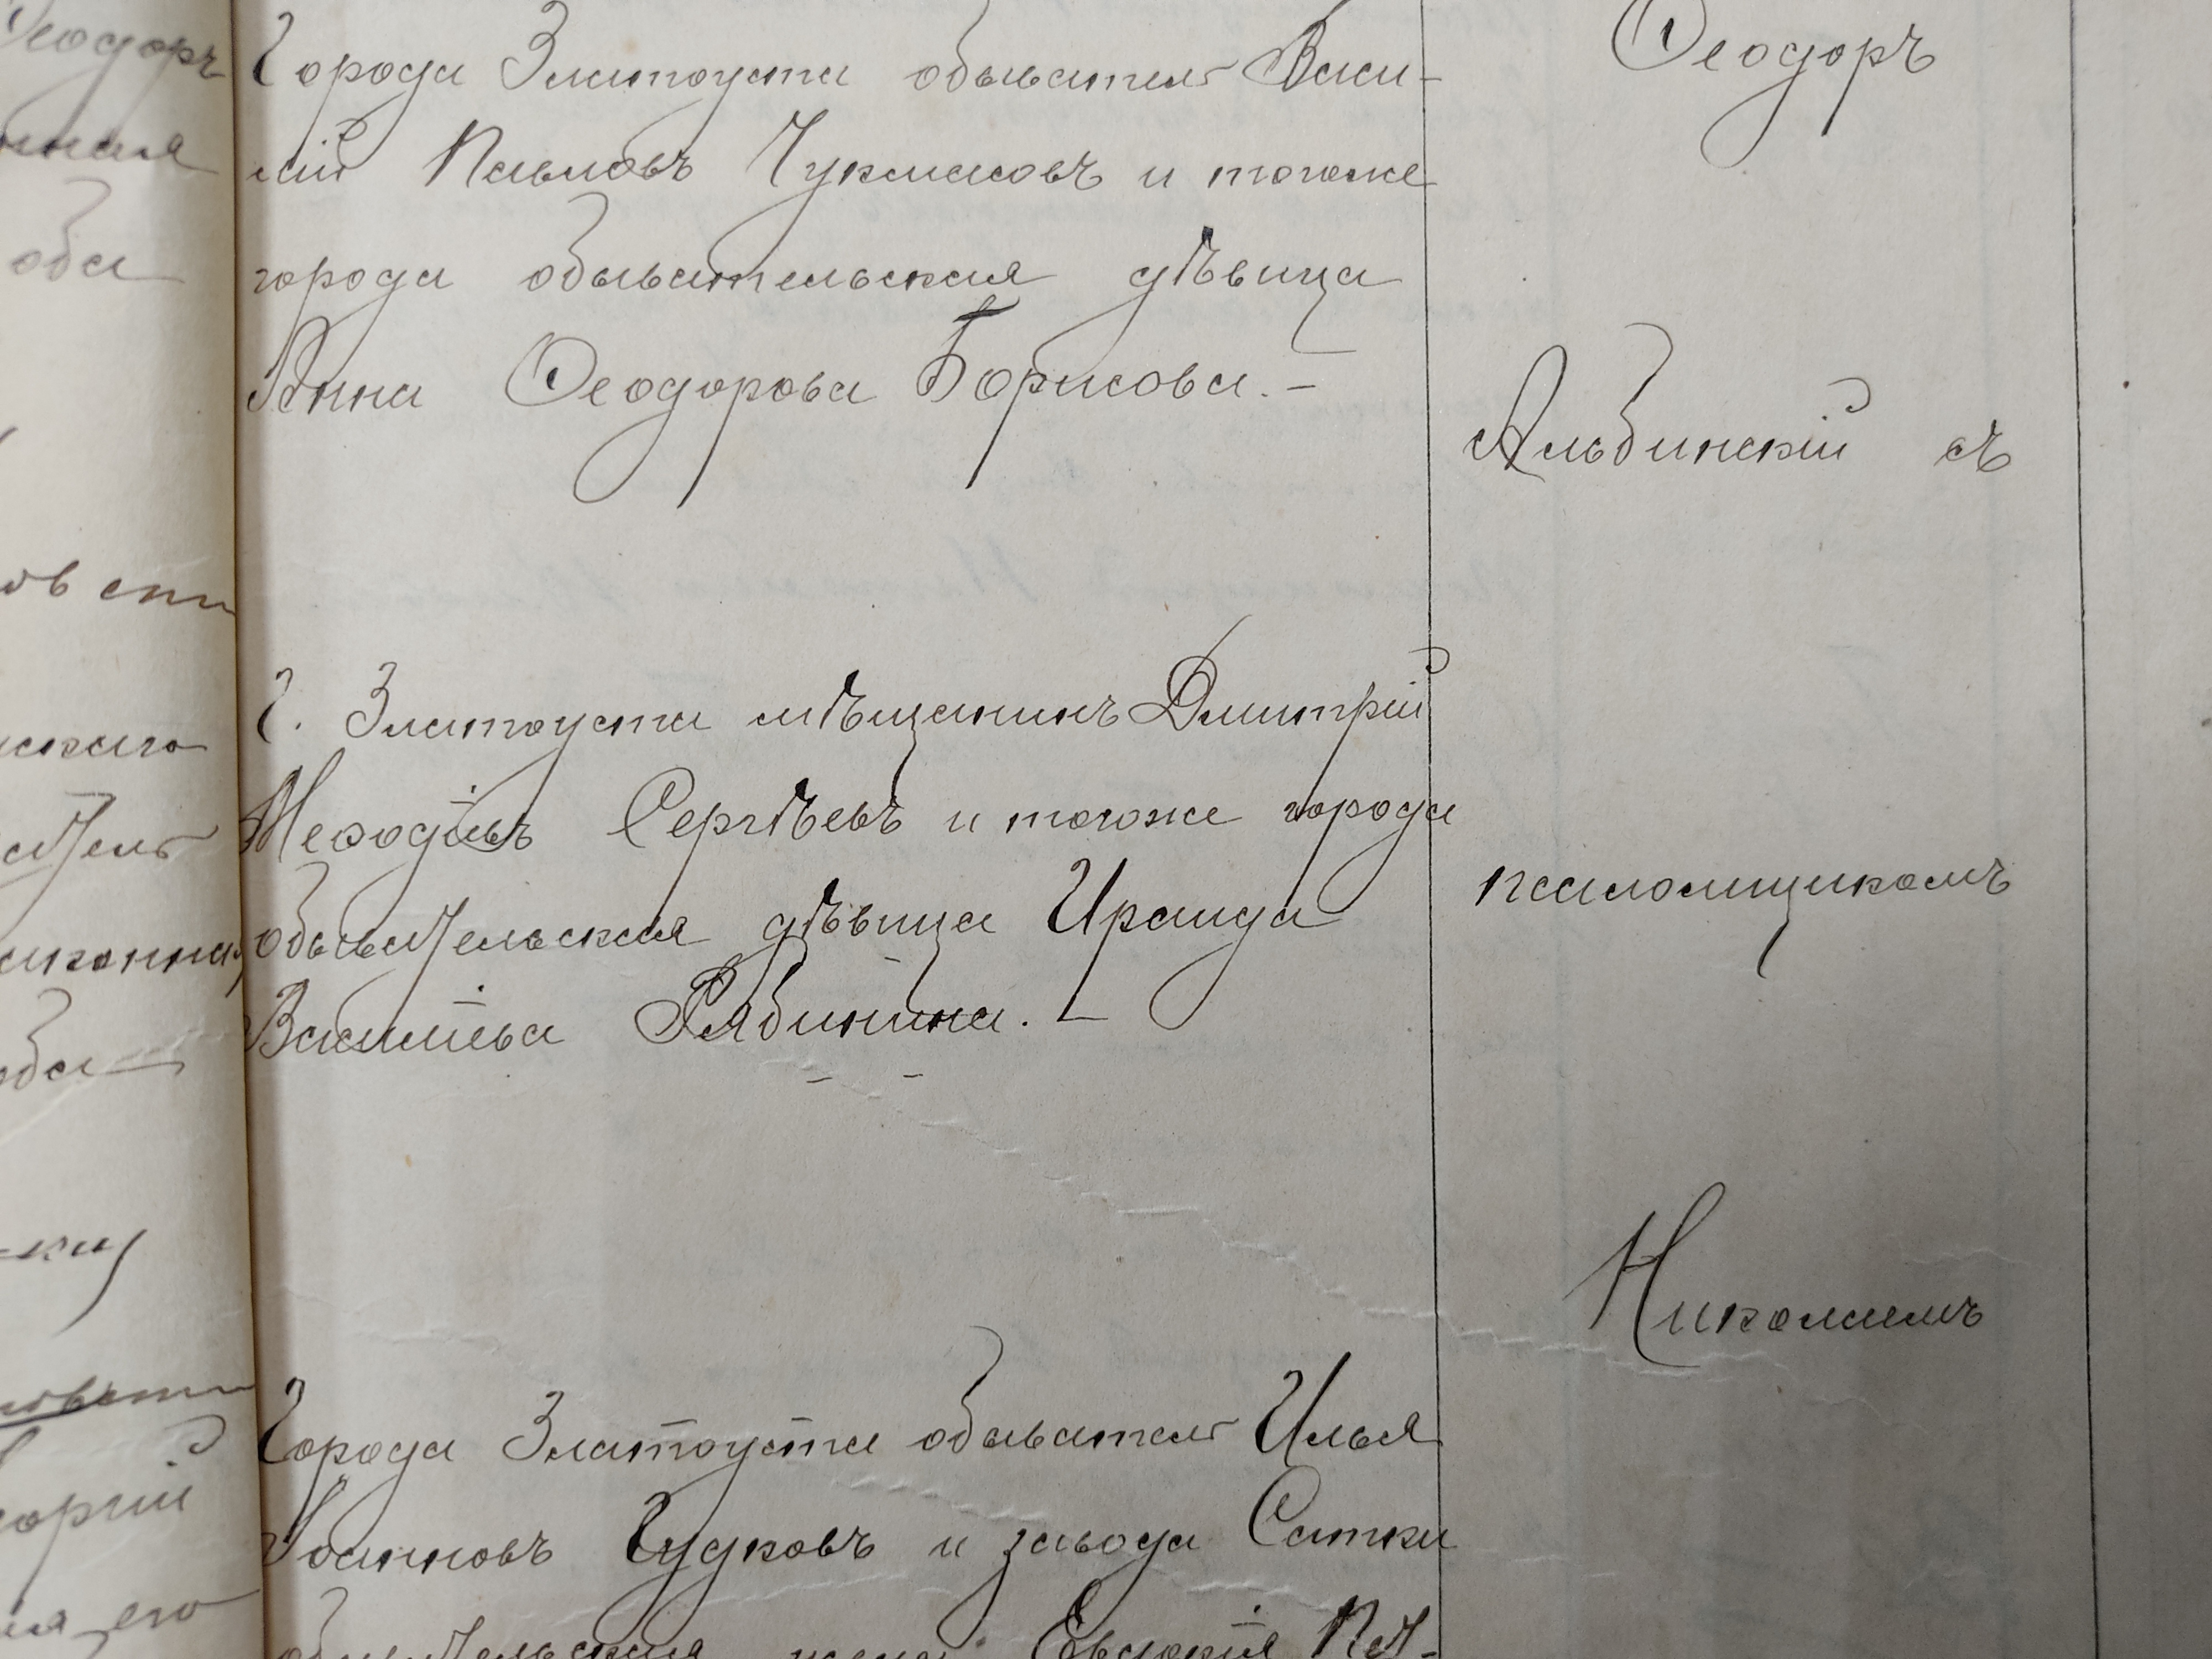 Ѳеодоръ
оба
Города Златоуста обыватель Васи-
лій Павловъ Чукмасовъ и тогоже
города обывательская дѣвица
Анна Ѳеодорова Борисова. –
Г. Златоуста мѣщанинъ Дмитрій
Меѳодіевъ Сергѣевъ и тогоже города
обывательская дѣвица Ираида
Василіева Рябинина. –
Города Златоуста обыватель Илья
Іоанновъ Чудковъ и завода Сатки
обывательская жена Евдокія
Ѳеодоръ
Альбинскій съ
псаломщикомъ
Николаемъ